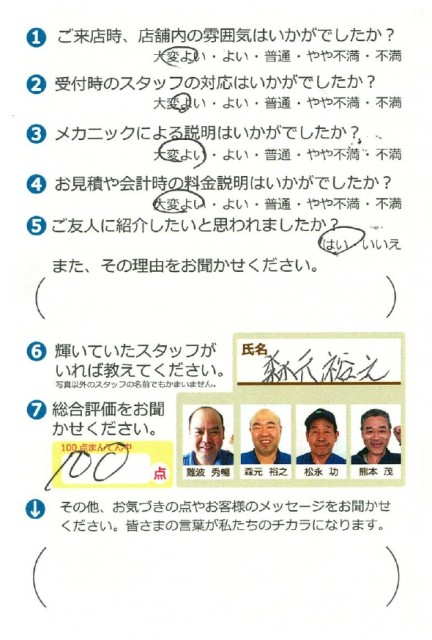 1 ご来店時、店舗内の雰囲気はいかがでしたか?
大変よい・よい・普通・やや不満・不満
2 受付時のスタッフの対応はいかがでしたか?
大変よい・よい・普通・やや不満・不満
3 メカニックによる説明はいかがでしたか?
大変よい・よい・普通・やや不満・不満
4 お見積や会計時の料金説明はいかがでしたか?
大変よい・よい・普通・やや不満・不満
5 ご友人に紹介したいと思われましたか?
はい・いいえ
また、その理由をお聞かせください。
6 輝いていたスタッフが
いれば教えてください。
写真以外のスタッフの名前でもかまいません。
氏名
森元裕之
7 総合評価をお聞
かせください。
100点まんてん中
100 点
難波 秀暢 森元 裕之 松永 功 熊本 茂
その他、お気づきの点やお客様のメッセージをお聞かせ
ください。皆さまの言葉が私たちのチカラになります。